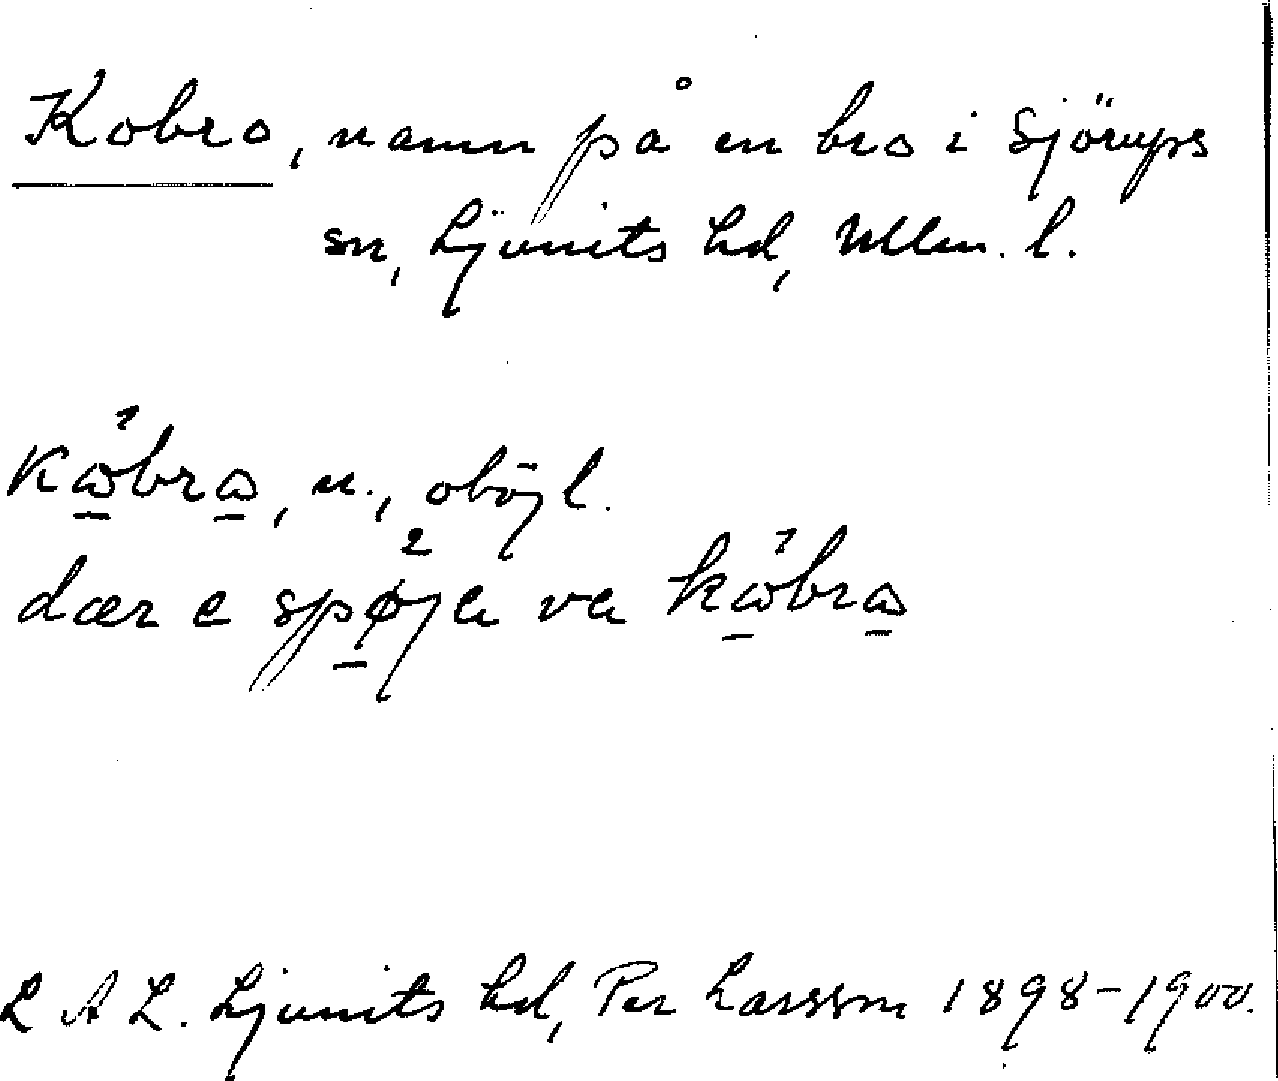 Kobro, namn på en bro i Sjörups
sn, Ljunits hd, Mlm. l.
kώ̱brω̱, n., oböjl.
dær e spø̱²ja va kώ̱brω̱
L A L. Ljunits hd, Per Larsson 1898-1900.